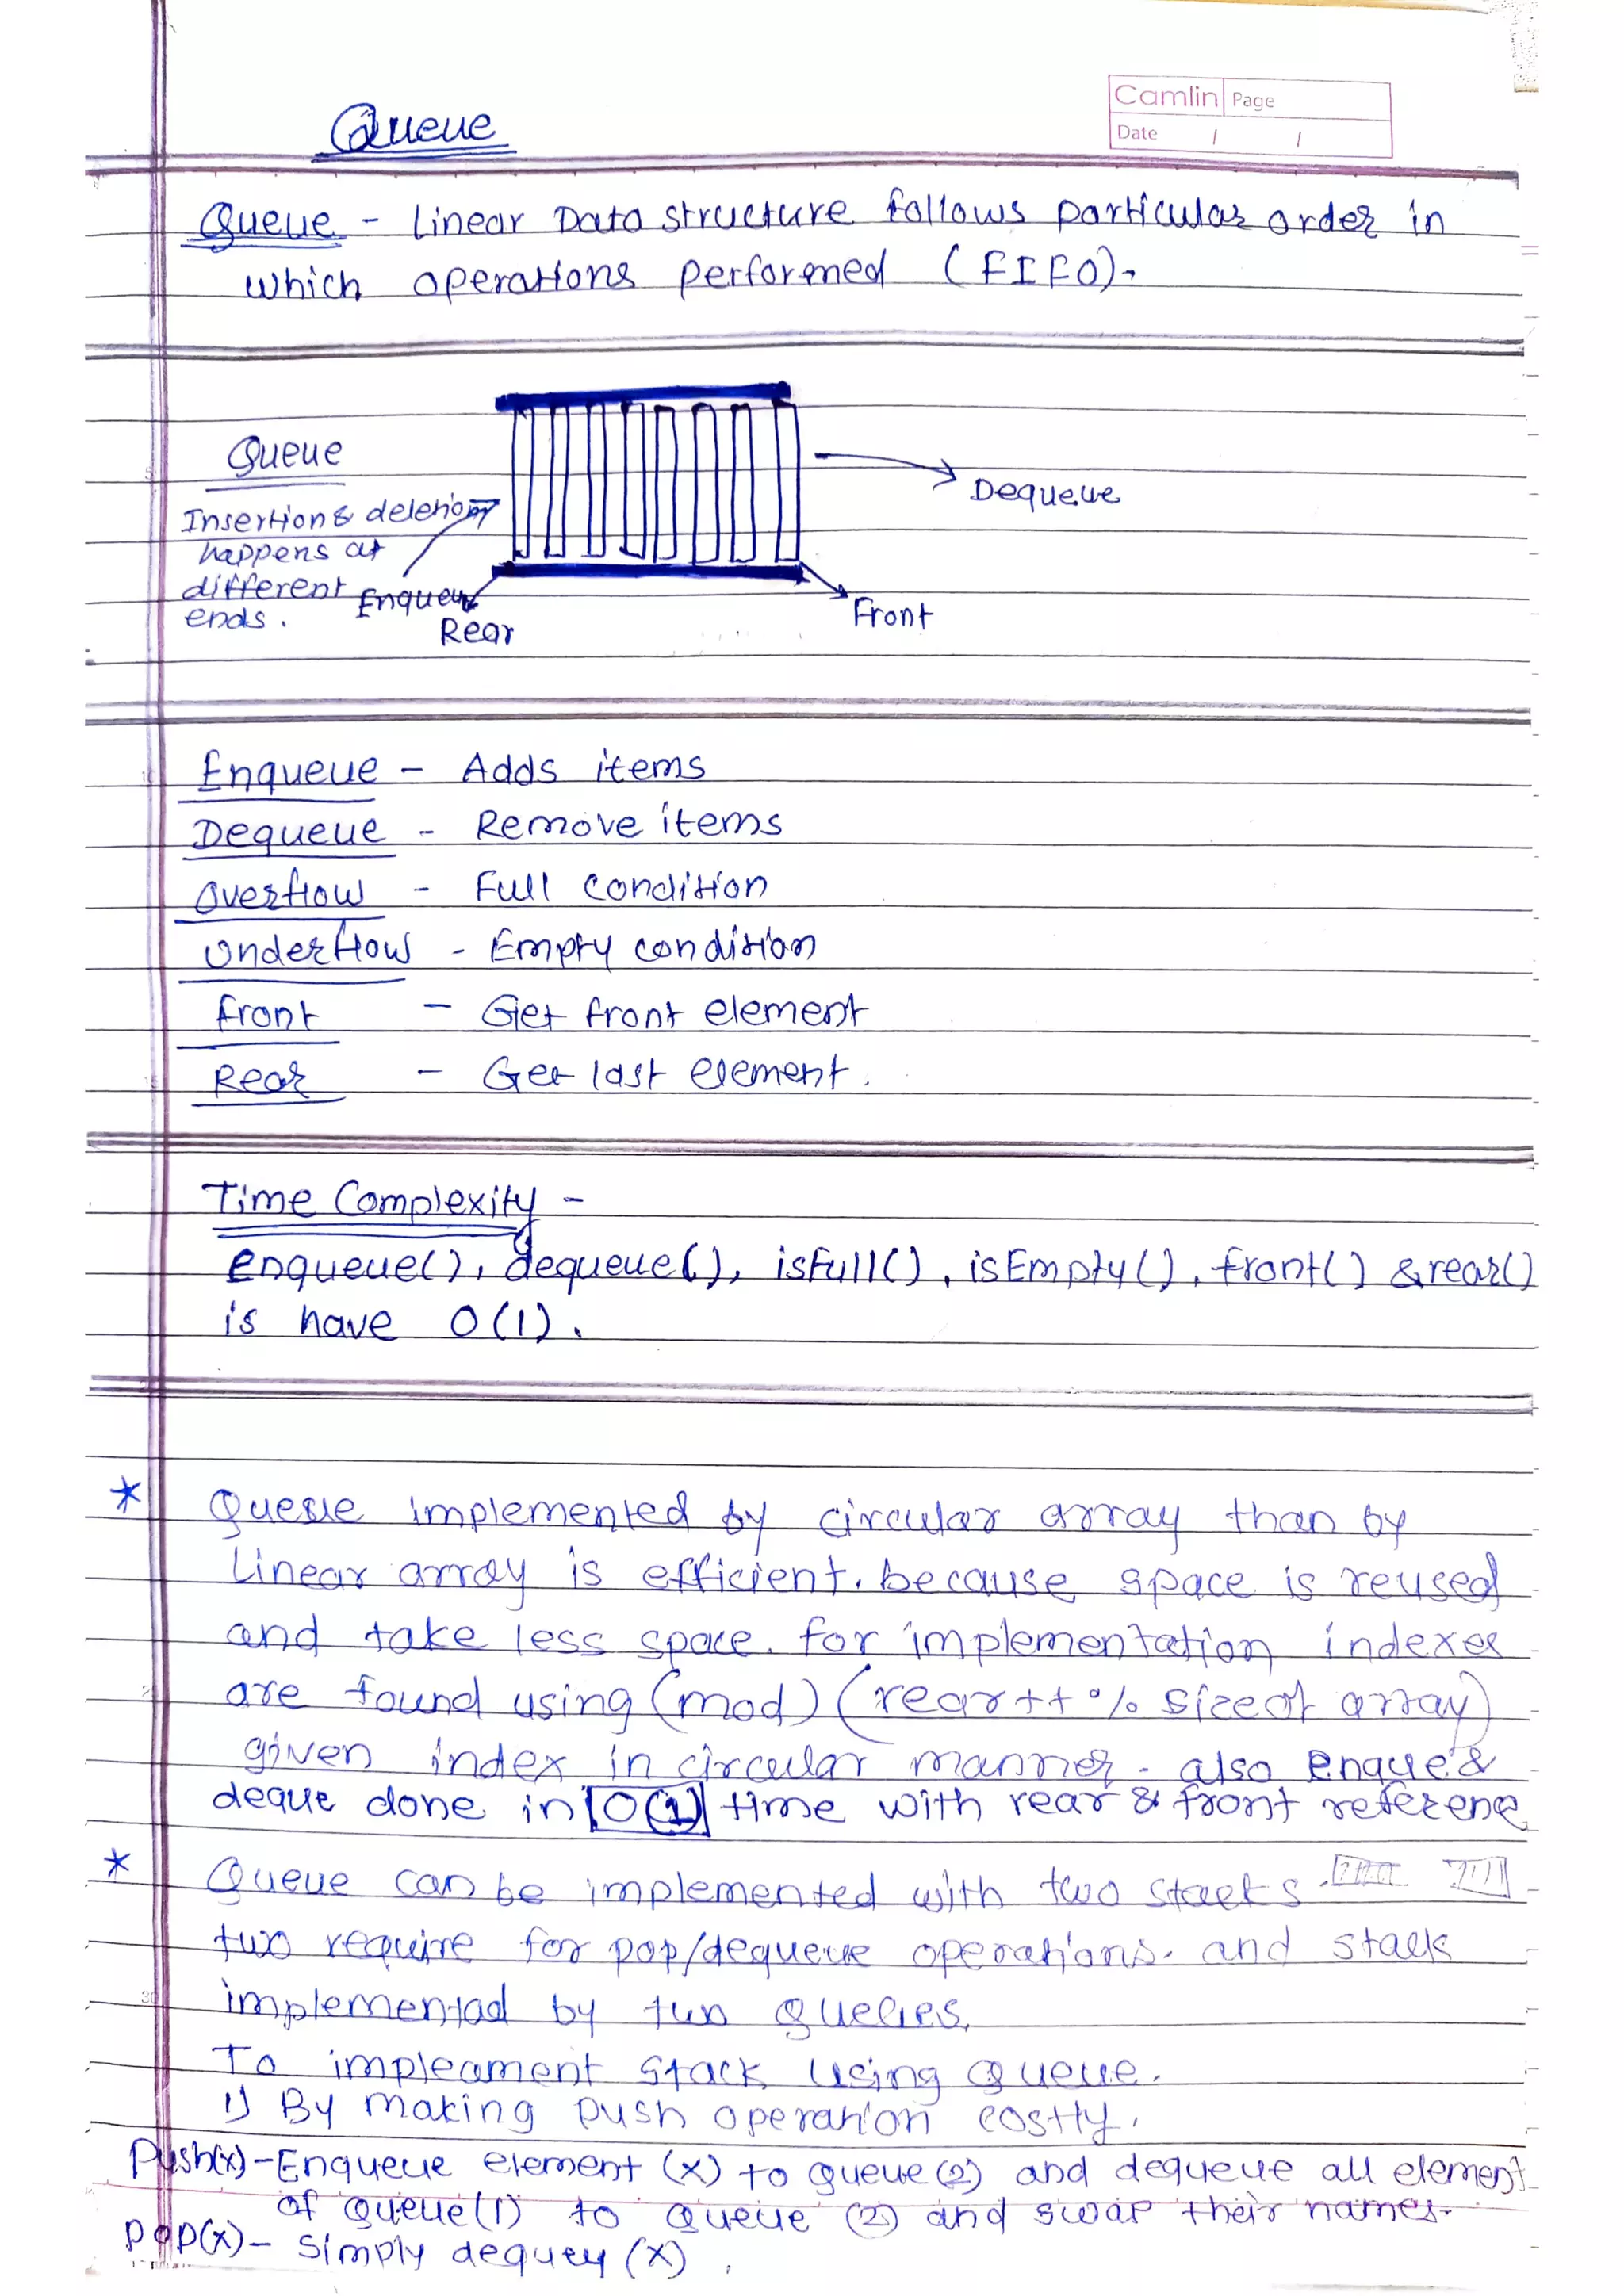 Queue
Camlin Page
Date / /
Queue - Linear Data structure follows particular order in
which operations performed (FIFO).
Queue
Insertion & deletion
happens at
different
ends.
Enqueue
Rear
Dequeue
Front
Enqueue - Adds items
Dequeue - Remove items
Overflow - Full condition
Underflow - Empty condition
Front - Get front element
Rear - Get last element.
Time Complexity -
enqueue(), dequeue(), isFull(), isEmpty(), front() & rear()
is have O(1).
* Queue implemented by circular array than by
Linear array is efficient. because space is reused
and take less space. for implementation indexes
are found using (mod) (rear++ % sizeof array)
given index in circular manner. also enque &
deque done in O(1) time with rear & front referenc
* Queue can be implemented with two stacks.
two require for pop/dequeue operations. and stack
implementad by two queues.
To impleament stack using queue.
1) By making push operation costly.
Push(x) - Enqueue element (x) to queue (2) and dequeue all element
of queue(1) to queue (2) and swap their names.
pop(x) - simply dequey (x).